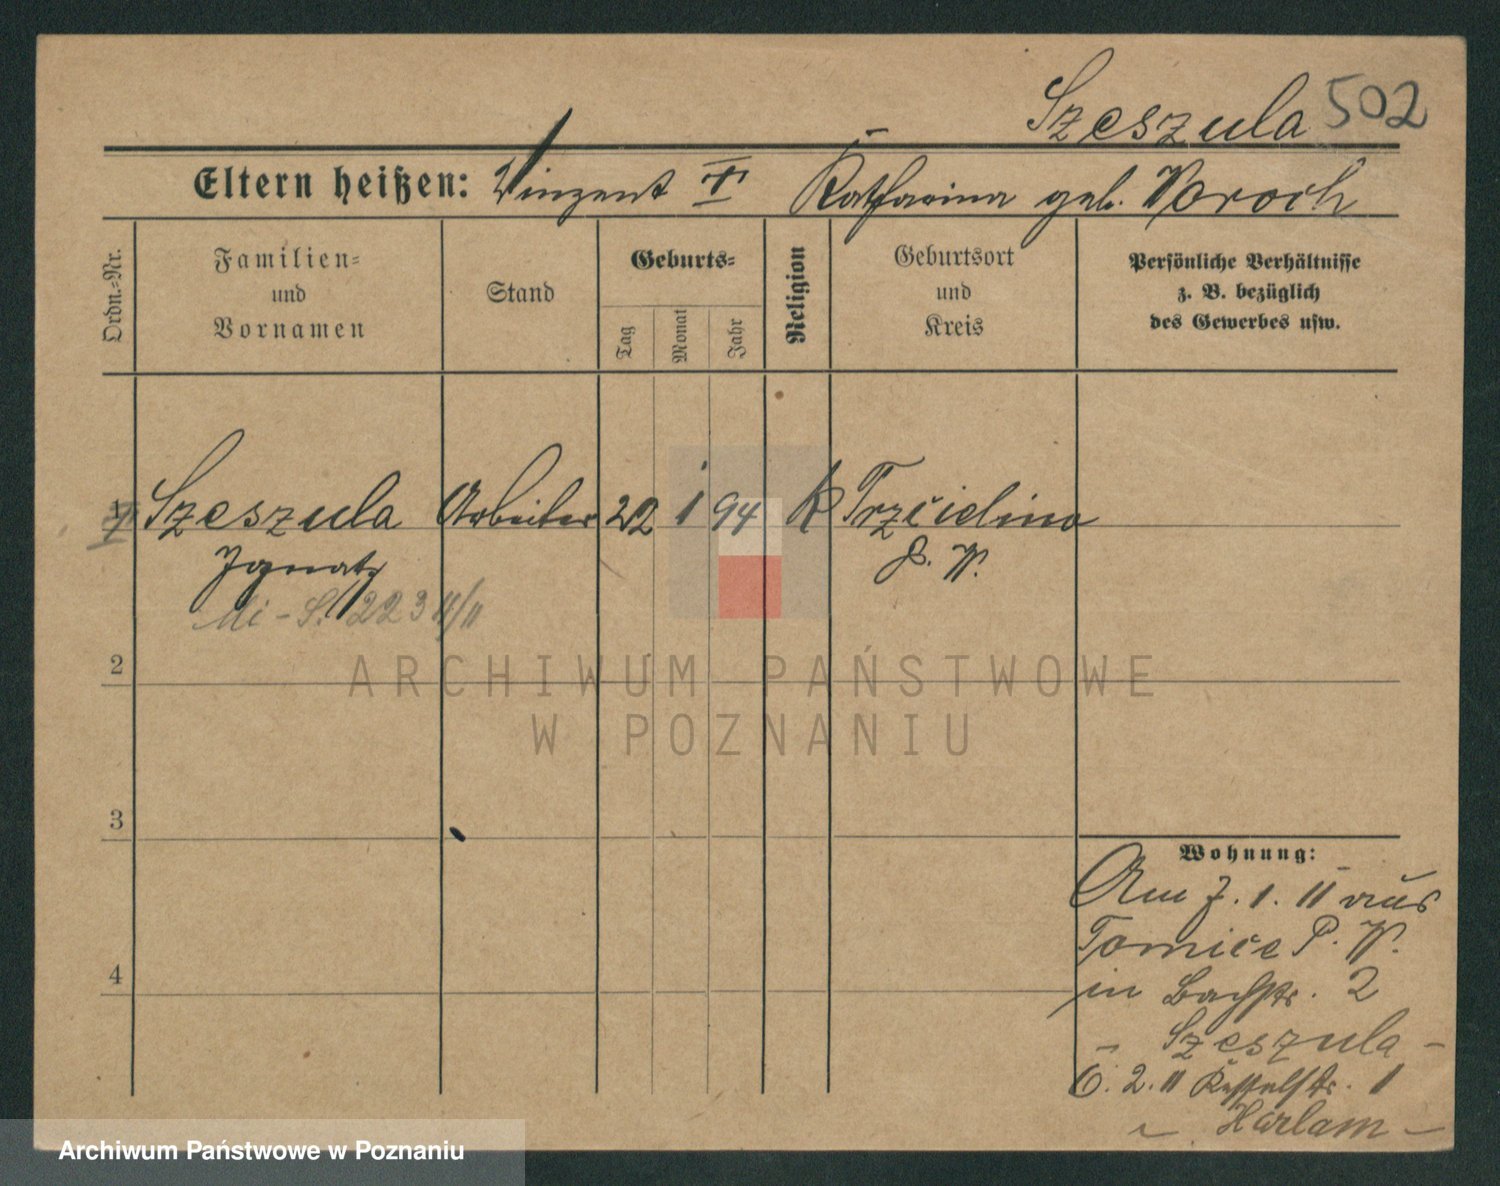 Szeszula 502
Eltern heißen: Vinzent † Katharina geb. Woroch
Ordn.-Nr.
Familien-
und
Vornamen
Stand
Geburts-
Tag
Monat
Jahr
Religion
Geburtsort
und
Kreis
Persönliche Verhältnisse
z. B. bezüglich
des Gewerbes usw.
1 Szeszula Arbeiter 22 1 94 K Trzcielino
Ignatz P. W.
Mi - S. 223 4/11
2
ARCHIWUM PAŃSTWOWE
W POZNANIU
3
Wohnung:
Am 7. 1. 11 aus
Tomice P. W.
4
in Bachstr. 2
- Szeszula -
6. 2. 11 Kesselstr. 1
Harlam -
Archiwum Państwowe w Poznaniu